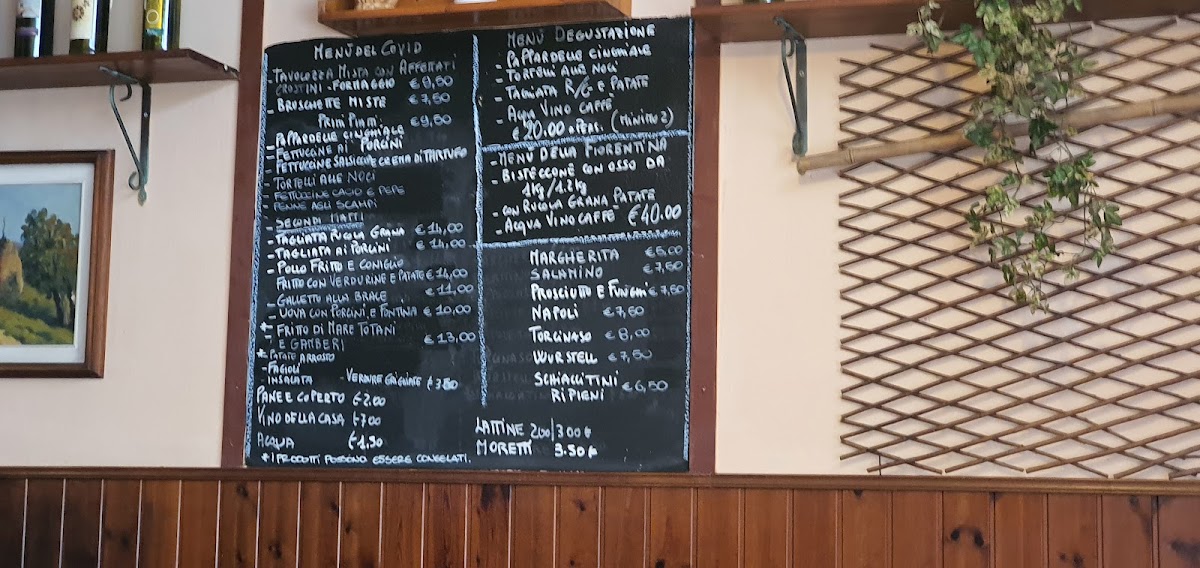 MENÙ DEL COVID
TAVOLOZZA MISTA CON AFFETTATI
CROSTINI - FORMAGGIO € 9,50
- BRUSCHETTE MISTE € 7,50
PRIMI PIATTI € 9,50
- PAPPARDELLE CINGHIALE
- FETTUCCINE AI PORCINI
- FETTUCCINE SALSICCIA E CREMA DI TARTUFO
- TORTELLI ALLE NOCI
- FETTUCCINE CACIO E PEPE
- PENNE AGLI SCAMPI
- SECONDI PIATTI
- TAGLIATA RUCOLA GRANA € 14,00
- TAGLIATA AI PORCINI € 14,00
- POLLO FRITTO E CONIGLIO
FRITTO CON VERDURINE E PATATE € 14,00
- GALLETTO ALLA BRACE € 11,00
- UOVA CON PORCINI E FONTINA € 10,00
* FRITTO DI MARE TOTANI
E GAMBERI € 13,00
* PATATE ARROSTO
- FAGIOLI
- INSALATA - VERDURE GRIGLIATE € 3.50
PANE E COPERTO € 2.00
VINO DELLA CASA € 7.00
ACQUA € 1.50
* I PRODOTTI POSSONO ESSERE CONGELATI.
MENÙ DEGUSTAZIONE
- PAPPARDELLE CINGHIALE
- TORTELLI ALLE NOCI
- TAGLIATA R/G E PATATE
- ACQUA VINO CAFFÈ
€ 20.00 A PERS. (MINIMO 2)
MENÙ DELLA FIORENTINA
- BISTECCONE CON OSSO DA
1 KG/1.2 KG
- CON RUCOLA GRANA PATATE
- ACQUA VINO CAFFÈ € 40.00
MARGHERITA € 5.00
SALAMINO € 7,50
PROSCIUTTO E FUNGHI € 7,50
NAPOLI € 7,50
TORGNASO € 8,00
WURSTELL € 7,50
SCHIACCITINI € 6,50
RIPIENI
LATTINE 200/300 €
MORETTI 3.50 €